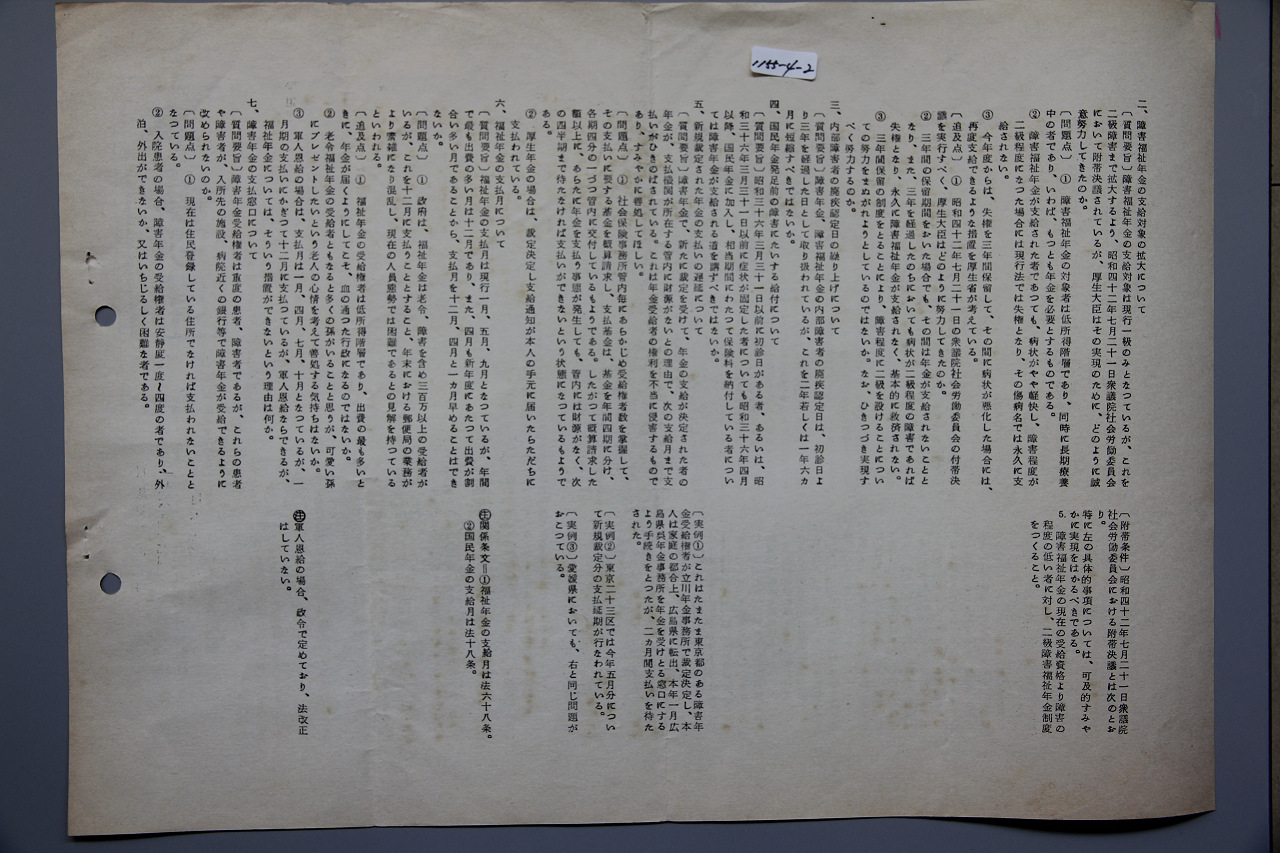 1155-4-2
二、障害福祉年金の支給対象の拡大について
〔質問要旨〕障害福祉年金の支給対象は現行一級のみとなつているが、これを
二級障害まで拡大するよう、昭和四十二年七月二十一日衆議院社会労働委員会
において附帯決議されているが、厚生大臣はその実現のために、どのように誠
意努力してきたのか。
〔問題点〕 ① 障害福祉年金の対象者は低所得階層であり、同時に長期療養
中の者であり、いわば、もつとも年金を必要とするものである。
② 障害福祉年金が支給された者であつても、病状がやや軽快し、障害程度が
二級程度になつた場合には現行法では失権となり、その傷病名では永久に支
給されない。
③ 今年度からは、失権を三年間保留して、その間に病状が悪化した場合には、
再度支給できるような措置を厚生省が考えている。
〔追及点〕 ① 昭和四十二年七月二十一日の衆議院社会労働委員会の付帯決
議を実行すべく、厚生大臣はどのように努力してきたのか。
② 三年間の保留期間をおいた場合でも、その間は年金が支給されないことと
なり、また、三年を経過したのちにおいても病状が二級程度の障害であれば
失権となり、永久に障害福祉年金が支給されなく、基本的に救済されない。
③ 三年間保留の制度をとることにより、障害程度に二級を設けることについ
ての努力をまぬがれようとしているのではないか。なお、ひきつづき実現す
べく努力するのか。
三、内部障害者の廃疾認定日の繰り上げについて
〔質問要旨〕障害年金、障害福祉年金の内部障害者の廃疾認定日は、初診日よ
り三年を経過した日として取り扱われているが、これを二年若しくは一年六カ
月に短縮すべきではないか。
四、国民年金発足前の障害にたいする給付について
〔質問要旨〕昭和三十六年三月三十一日以前に初診日がある者、あるいは、昭
和三十六年三月三十一日以前に症状が固定した者についても昭和三十六年四月
以降、国民年金に加入し、相当期間にわたつて保険料を納付している者につい
ては障害年金が支給される道を講ずべきではないか。
五、新規裁定された年金の支払いの遅延について
〔質問要旨〕障害年金で、新たに裁定を受けて、年金の支給が決定された者の
年金が、支払機関が所在する管内に財源がないとの理由で、次の支給月まで支
払いがひきのばされている。これは年金受給者の権利を不当に侵害するもので
あり、すみやかに善処してほしい。
〔問題点〕 ① 社会保険事務所管内毎にあらかじめ受給権者数を掌握して、
その支払いに要する基金を概算請求し、支払基金は、基金を年間四期に分け、
各期四分の一づつ管内に交付しているもようである。したがつて概算請求した
額以上に、あらたに年金を支払う事態が発生しても、管内には財源がなく、次
の四半期まで待たなければ支払いができないという状態になつているもようで
ある。
② 厚生年金の場合は、裁定決定し支給通知が本人の手元に届いたらただちに
支払われている。
六、福祉年金の支給月について
〔質問要旨〕福祉年金の支払月は現行一月、五月、九月となつているが、年間
で最も出費の多い月は十二月であり、また、四月も新年度にあたつて出費が割
合い多い月であることから、支払月を十二月、四月と一カ月早めることはでき
ないか。
〔問題点〕 ① 政府は、福祉年金は老令、障害を含め三百万以上の受給者が
いるが、これを十二月に支払うこととすることは、年末における郵便局の業務が
より繁雑になり混乱し、現在の人員態勢では困難であるとの見解を持つている
といわれる。
〔追及点〕 ① 福祉年金の受給権者は低所得階層であり、出費の最も多いと
きに、年金が届くようにしてこそ、血の通つた行政になるのではないか。
② 老令福祉年金の受給者ともなると多くの孫がいることと思うが、可愛い孫
にプレゼントしたいという老人の心情を考えて善処する気持ちはないか。
③ 軍人恩給の場合は、支払月は一月、四月、七月、十月となつているが、一
月期の支払いにかぎつて十二月に支払つているが、軍人恩給ならできるが、
福祉年金については、そういう措置ができないという理由は何か。
七、障害年金の支払窓口について
〔質問要旨〕障害年金受給権者は重度の患者、障害者であるが、これらの患者
や障害者が、入所先の施設、病院近くの銀行等で障害年金が受給できるように
改められないのか。
〔問題点〕 ① 現在は住民登録している住所でなければ支払われないことと
なつている。
② 入院患者の場合、障害年金の受給権者は安静度一度〜四度の者であり、外
泊、外出ができないか、又はいちじるしく困難な者である。
〔附帯条件〕昭和四十二年七月二十一日衆議院
社会労働委員会における附帯決議とは次のとお
り。
特に左の具体的事項については、可及的すみや
かに実現をはかるべきである。
5. 障害福祉年金の現在の受給資格より障害の
程度の低い者に対し、二級障害福祉年金制度
をつくること。
〔実例①〕これはたまたま東京都のある障害年
金受給権者が立川年金事務所で裁定決定し、本
人は家庭の都合上、広島県に転出、本年一月広
島県呉年金事務所を年金を受けとる窓口にする
よう手続きをとつたが、二カ月間支払いを待た
された。
〔実例②〕東京二十三区では今年五月分につい
て新規裁定分の支払延期が行なわれている。
〔実例③〕愛媛県においても、右と同じ問題が
おこつている。
㊟関係条文＝①福祉年金の支給月は法六十八条。
②国民年金の支給月は法十八条。
㊟軍人恩給の場合、政令で定めており、法改正
はしていない。